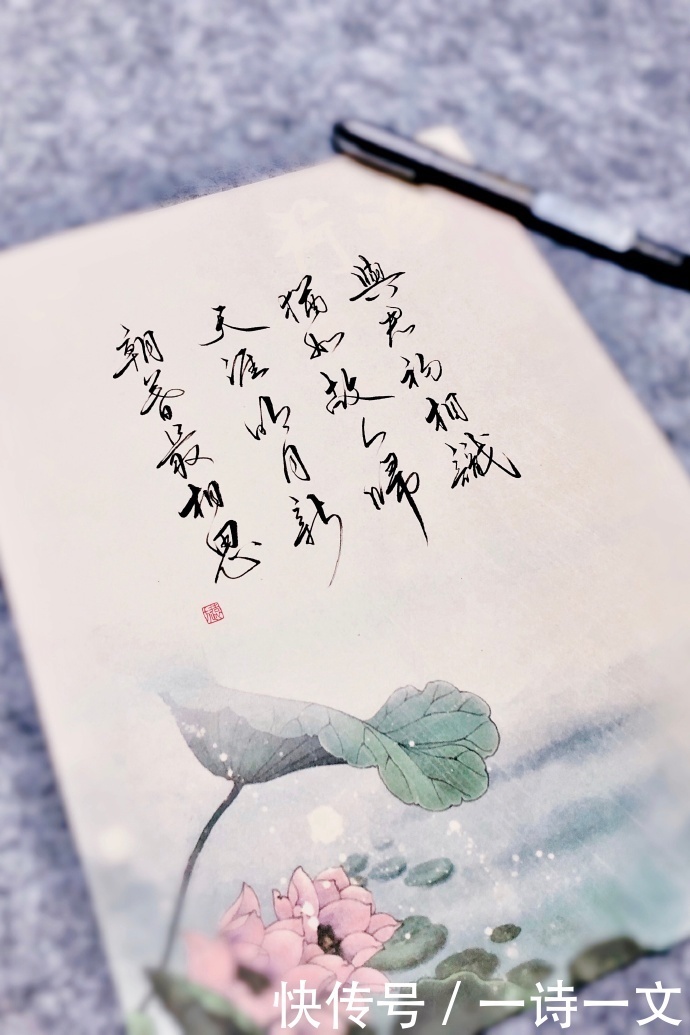 與君初相識
猶如故人歸
天涯明月新
朝暮最相思
快传号 / 一诗一文